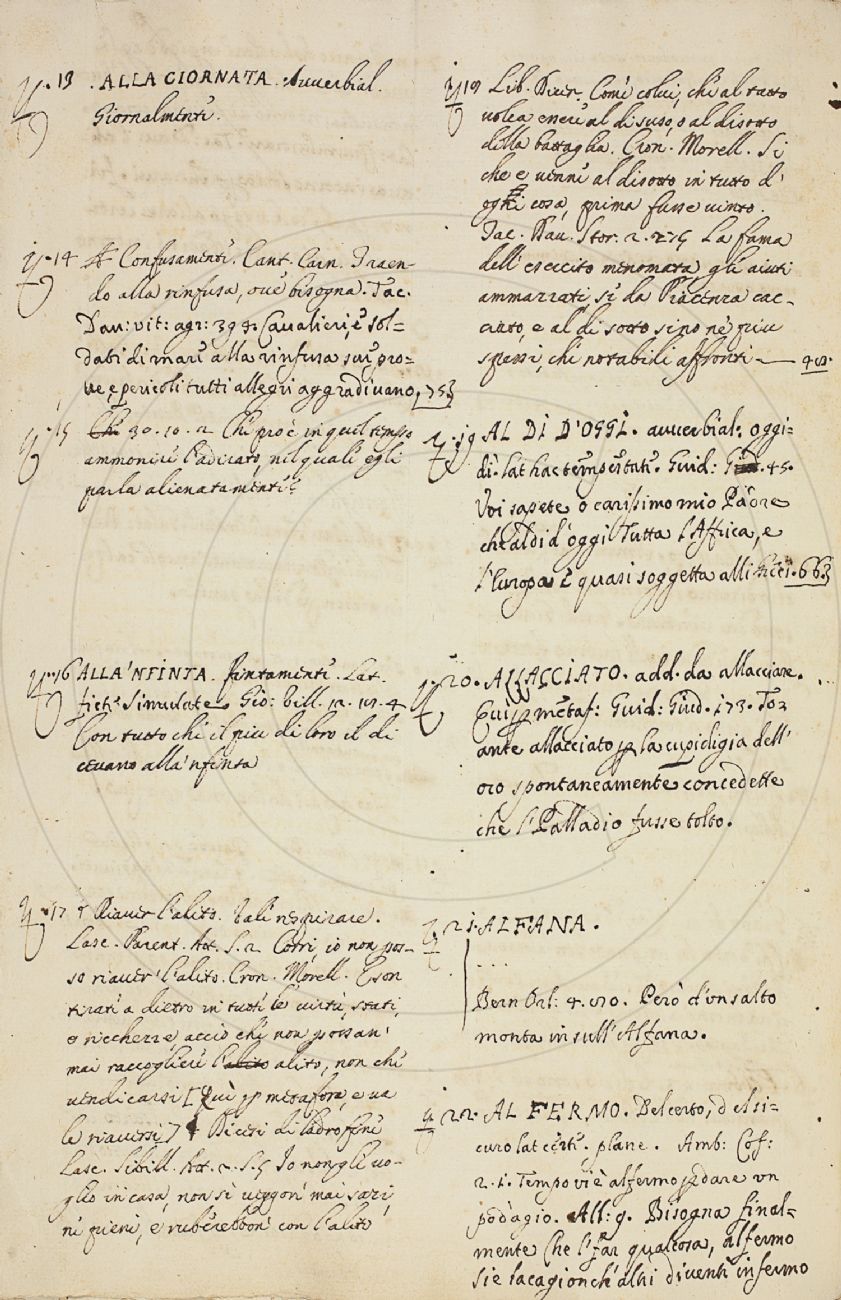 13 . ALLA GIORNATA. Avverbial.
Giornalmente.
14 Confusamente. Cant. Carn. Traen-
do alla rinfusa, ove bisogna. Tac.
Dav: vit: agr: 399. Cavalieri, e sol=
dati di mare alla rinfusa sue pro=
ve, e pericoli tutti allegri aggradivano, 753
15 Che 30. 10. 2 Chi può è in quel tempo
ammonire l'adirato, nel quale egli
parla alienatamente?
16 ALLA'NFINTA. fintamente. Lat.
ficte simulate. Gio: Vill. 12. 4
Con tutto che il più di loro il di
cevano alla'nfinta
17 Riaver l'alito. Vale respirare.
Lasc. Parent. At. S. 2. Corri, io non pos-
so riaver l'alito. Cron. Morell. E son
tirati a dietro in tutte le virtù, stati,
e ricchezze, acciò che non possan'
mai raccogliere l'alito alito, non che
vendicarsi [Qui per metafora, e va
le riaversi] Dicesi di ladro fine
Lasc. Sibill. At. 2. S. 5 Io non gli vo-
glio in casa, non si veggon' mai sazi
nè pieni, e ruberebbon' con l'alito
19 Lib. Dicer. Come colui, che al tutto
volea essere al di suso, o al disotto
della battaglia. Cron. Morell. Si
che e' venne al disotto in tutto d'
ogni cosa, prima fusse vinto.
Tac. Dav. Stor. 2. 275 La fama
dell'esercito menomata, gli aiuti
ammazzati, sè da Piacenza cac-
ciato, e al di sotto sino nè più
spessi, che notabili affronti
19 AL DÌ D'OGGI. avverbial: oggi=
dì. lat hac tempestate. Guid: G. 45.
Voi sapete o carissimo mio Padre
che al dì d'oggi Tutta l'Affrica, e
l'Europa è quasi soggetta alli 663
20. ALLACCIATO. add. da allacciare.
Qui per metaf: Guid: Giud. 173. To=
ante allacciato per la cupidigia dell'
oro spontaneamente concedette
che l'Palladio fusse tolto.
21. ALFANA.
....
Bern Orl: 4. Però d'un salto
monta in sull'Alfana.
22. AL FERMO. Del certo, del si=
curo lat certe. plane. Amb: Cof:
2. 1. Tempo viè al fermo per dare un
podagio. All: 9. Bisogna final=
mente Che l'far qualcosa, al fermo
Sie la cagion ch'altri diventi infermo